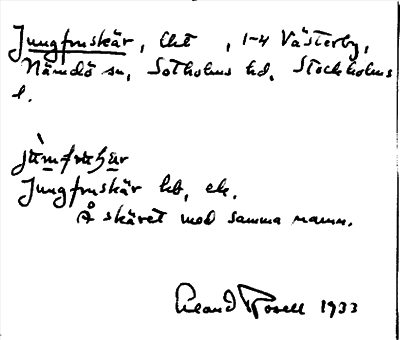 Jungfruskär, lht, 1-4 Västerby,
Nämdö sn, Sotholms hd, Stockholms
l.
Jungfruskär hb, ek.
På skäret med samma namn.
Erland Rosell 1933